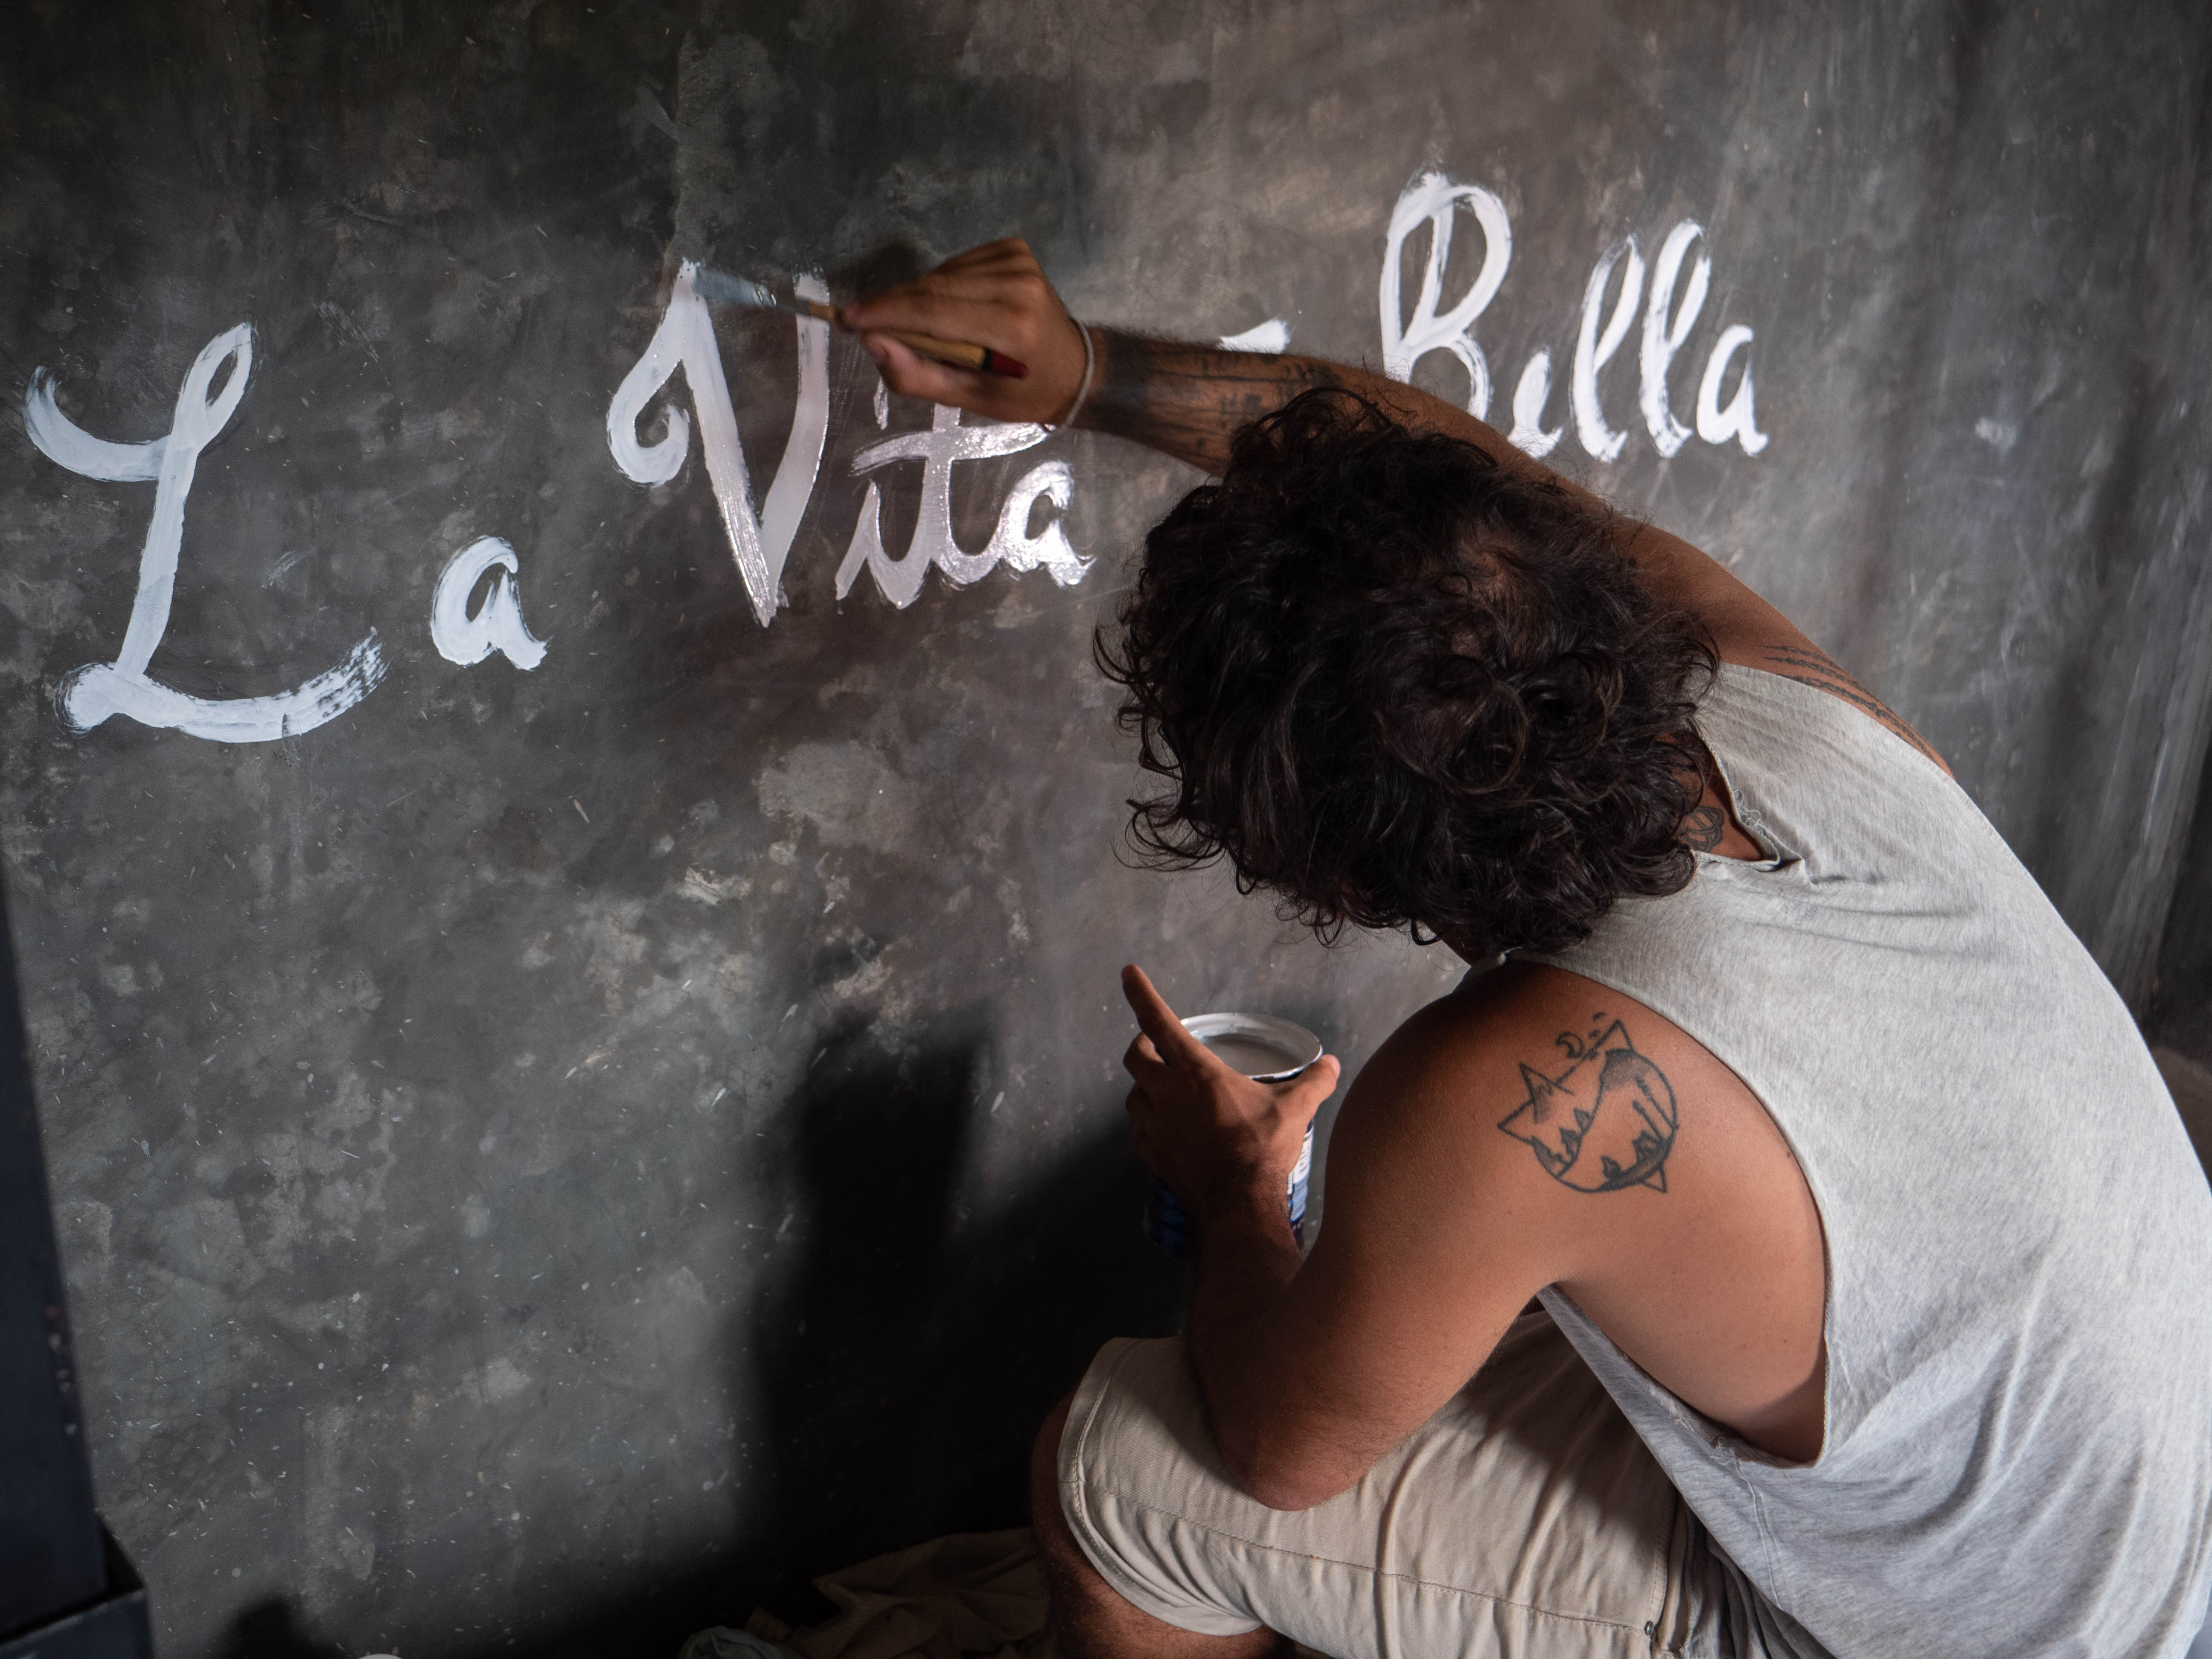 La Vita Bella